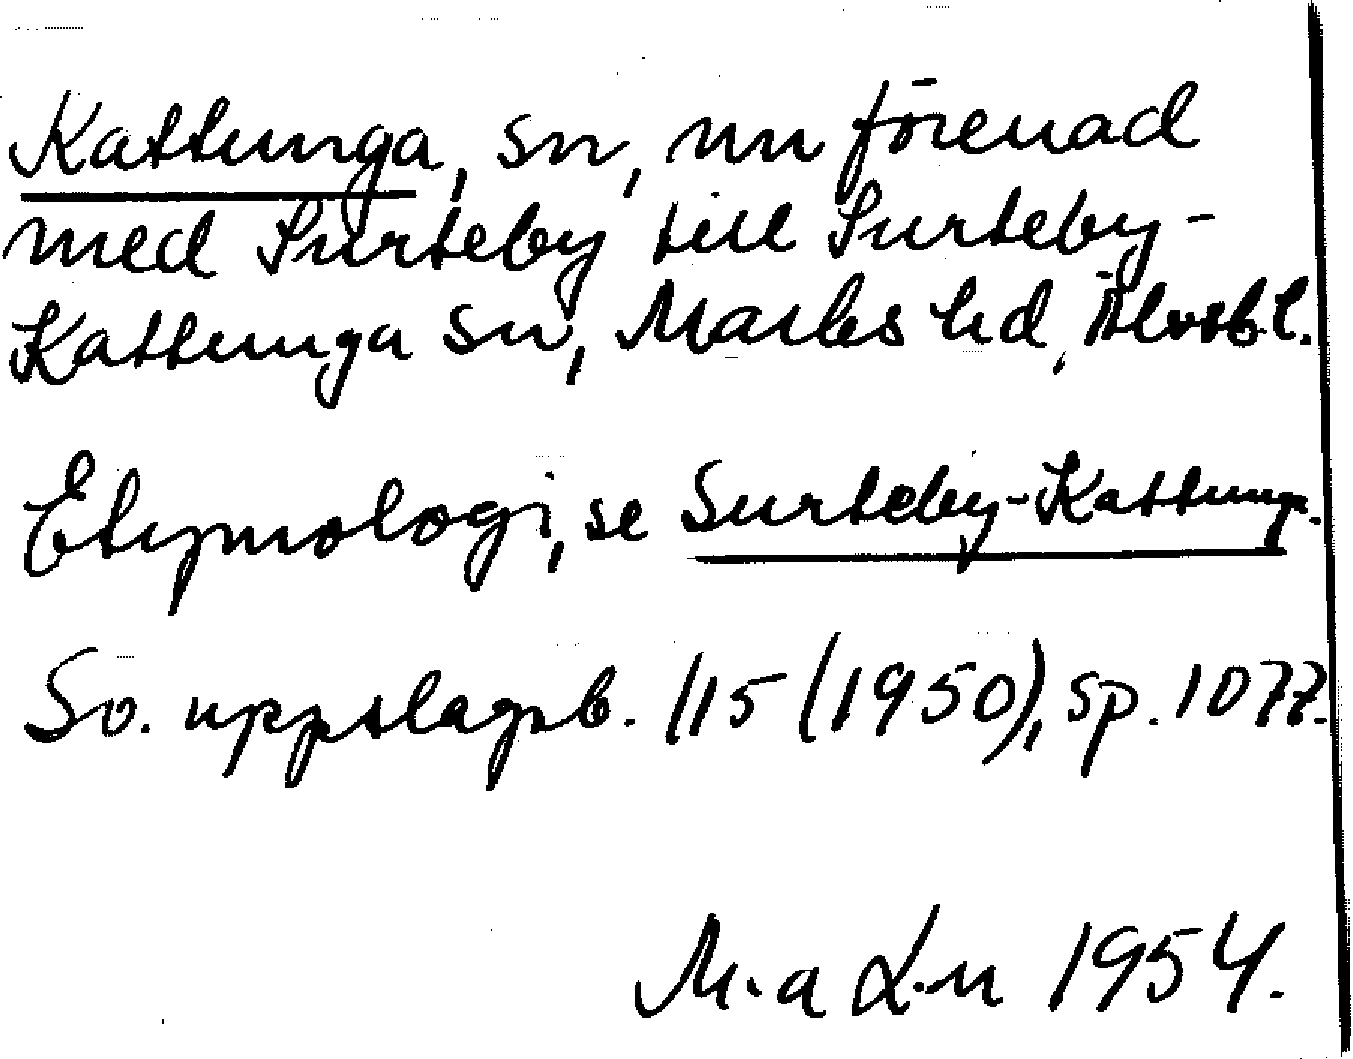 Kattunga, sn, nu förenad
med Surteby till Surteby-
Kattunga sn, Marks hd, Älvsb.l.
Etymologi, se Surteby-Kattung.
Sv. uppslagsb. /15 (1950), sp. 1077.
M.a L.n 1954.